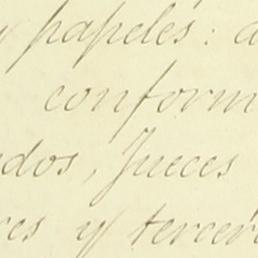 y papeles: a
conform
dos, Jueces
res y tercer